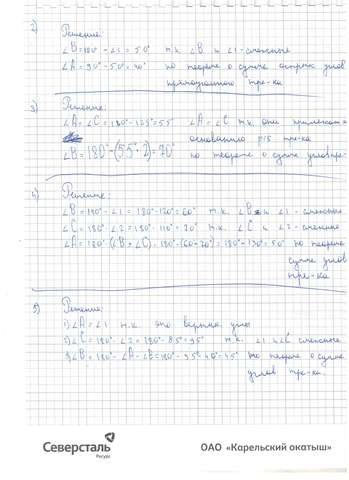 2) Решение:
∠B=180°-∠1=50° т.к. ∠B и ∠1-смежные
∠A=90°-50°=40° по теореме о сумме острых углов
прямоугольного тре-ка
3) Решение:
∠A=∠C=180°-125°=55° ∠A=∠C т.к. они прилежат к
основанию р/б тре-ка
∠B=180°-(55°·2)=70° по теореме о сумме углов тре-
4) Решение:
∠B=180°-∠1=180°-120°=60° т.к. ∠B и ∠1-смежные
∠C=180°-∠2=180°-110°=70° т.к. ∠C и ∠2-смежные
∠A=180°-(∠B+∠C)=180°-(60+70°)=180°-130°=50° по теореме
о сумме углов
тре-ка
5) Решение:
1) ∠A=∠1 т.к. это верт. углы
2) ∠C=180°-∠2=180°-85°=95° т.к. ∠2 и ∠C смежные
3) ∠B=180°-∠A-∠C=180°-95°-40°=45° по теореме о сумме
углов тре-ка.
Северсталь
Ресурс
ОАО «Карельский окатыш»